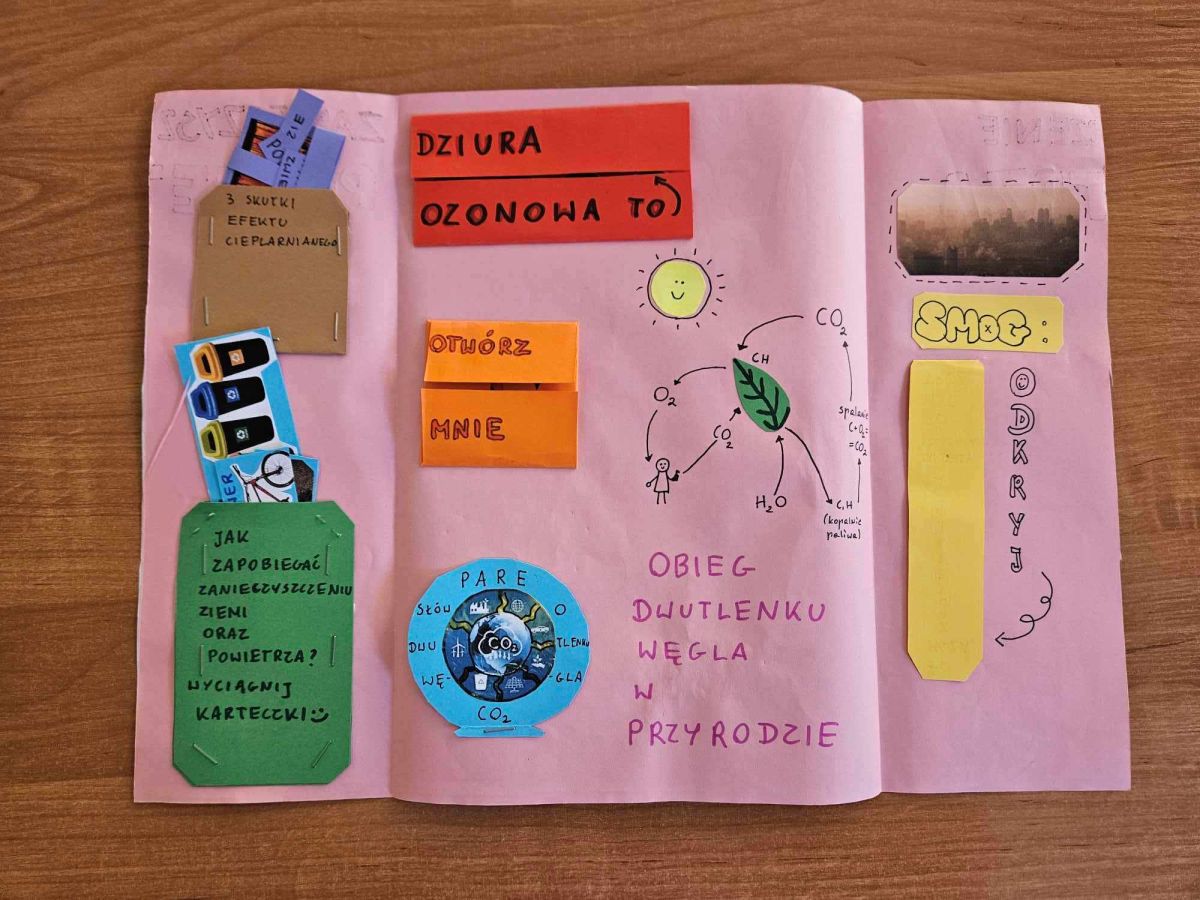 3 SKUTKI
EFEKTU
CIEPLARNIANEGO
JAK
ZAPOBIEGAĆ
ZANIECZYSZCZENIU
ZIEMI
ORAZ
POWIETRZA?
WYCIĄGNIJ
KARTECZKI
DZIURA
OZONOWA TO
OTWÓRZ
MNIE
PARE
SŁÓW O
DWU TLENKU
WĘ- -GLA
CO₂
CO₂
CO₂
CH
O₂
CO₂
H₂O
spalanie
C+O₂=
=CO₂
C, H
(kopalnie
paliwa)
OBIEG
DWUTLENKU
WĘGLA
W
PRZYRODZIE
SMOG:
ODKRYJ